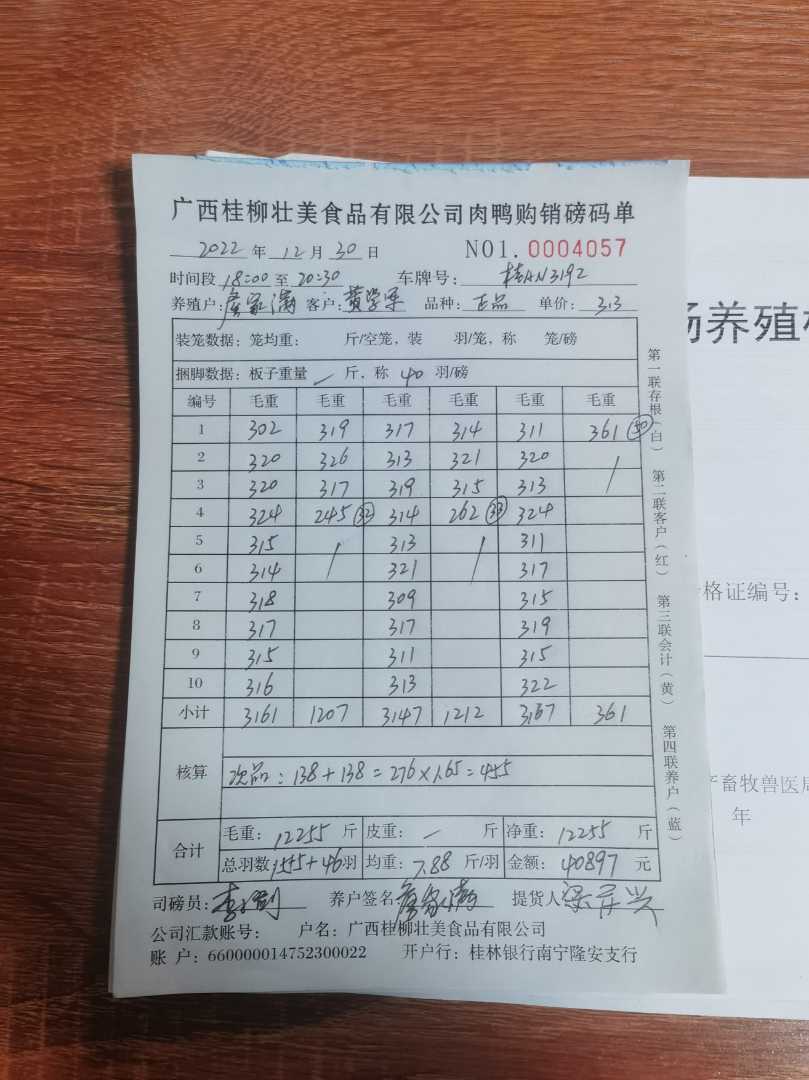 广西桂柳壮美食品有限公司肉鸭购销磅码单
2022年12月30日 NO1.0004057
时间段18:00至20:30 车牌号:桂AN3192
养殖户: 家满 客户:黄学 品种:正品 单价:3.13
装笼数据:笼均重: 斤/空笼,装 羽/笼,称 笼/磅
捆脚数据:板子重量 / 斤,称 40 羽/磅
编号 毛重 毛重 毛重 毛重 毛重 毛重
1 302 319 317 314 311 361 (50)
2 320 326 313 321 320 /
3 320 317 319 315 313
4 324 245 (32) 314 262 (33) 324
5 315 / 313 / 311
6 314 321 317
7 318 309 315
8 317 317 319
9 315 311 315
10 316 313 322
小计 3161 1207 3147 1212 3167 361
核算 次品:138+138=276×1.65=455
合计 毛重:12255斤 皮重:—斤 净重:12255斤
总羽数1555+46羽 均重:7.88斤/羽 金额:40897元
司磅员: 养户签名: 家满 提货人:梁 兴
公司汇款账号: 户名:广西桂柳壮美食品有限公司
账 户:660000014752300022 开户行:桂林银行南宁隆安支行
第一联存根(白) 第二联客户(红) 第三联会计(黄) 第四联养户(蓝)
场养殖
格证编号:
畜牧兽医局
年